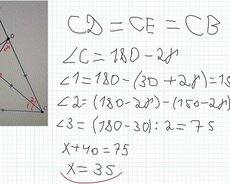 CD = CE = CB
∠C = 180 - 2α
∠1 = 180 - (30 + 2α) = 15
∠2 = (180 - 2α) - (150 - 2α)
∠3 = (180 - 30) : 2 = 75
x + 40 = 75
x = 35